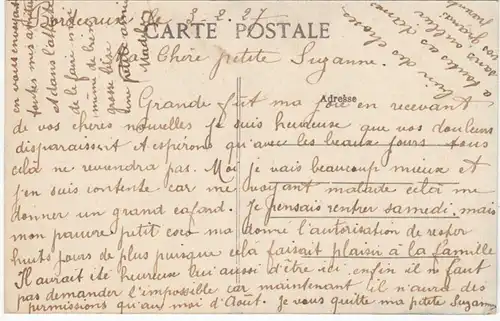 le 2.2.27
CARTE POSTALE
Ma Chère petite Suzanne.
Adresse
Grande fût ma joie en recevant
de vos chères nouvelles je suis heureuse que vos douleurs
disparaissent. Espérons qu'avec les beaux jours tous
cela ne reviendra pas. Moi je vais beaucoup mieux et
j'en suis contente car me voyant malade cela me
donner un grand cafard. Je pensais rentrer samedi, mais
mon pauvre petit coco ma donné l'autorisation de rester
huits jours de plus puisque cela faisait plaisir à la famille
Il aurait été heureux lui aussi d'être ici enfin il n faut
pas demander l'impossible car maintenant il n'aura des
permissions qu'au moi d'Août. Je vous quitte ma petite Suzanne
en vous envoyant
toutes mes amitiés
et dans l'attente
de le faire
grosse bise
une petite amie